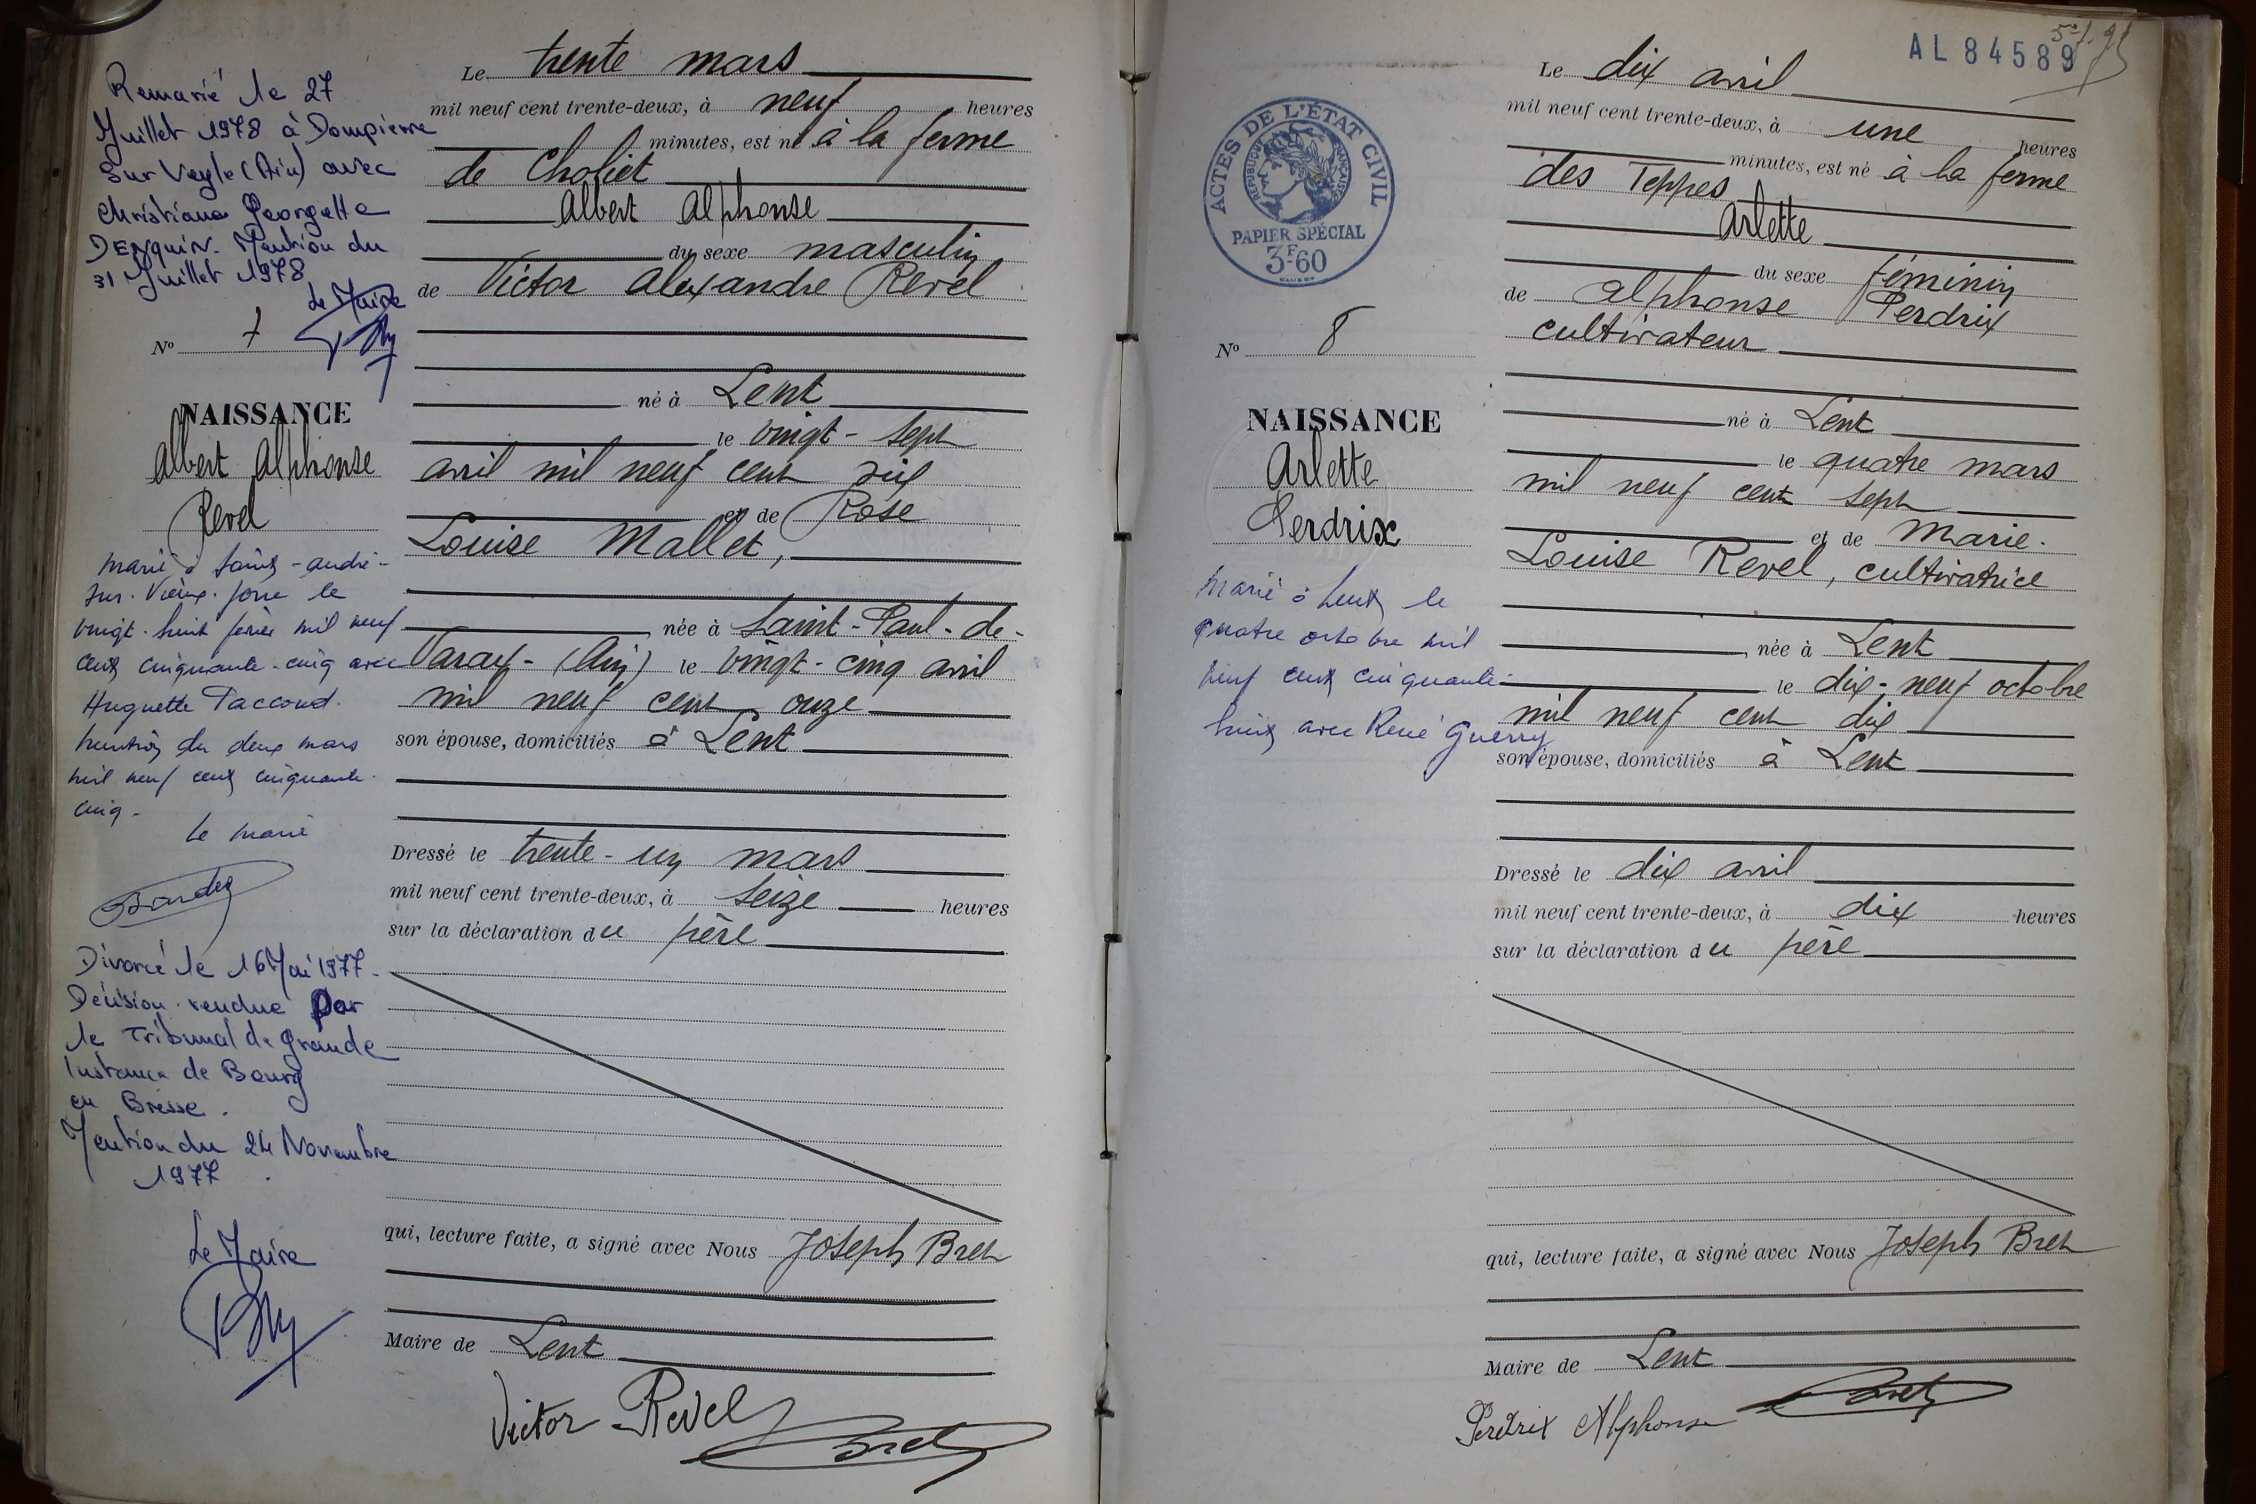 Remarié le 27
Juillet 1978 à Dompierre
sur Veyle (Ain) avec
Christiane Georgette
DENQUIN. Mention du
31 Juillet 1978
Le Maire
No 7
NAISSANCE
Albert Alphonse
Revel
Marié à Saint-André-
sur-Vieux-Jonc le
vingt-huit février mil neuf
cent cinquante-cinq avec
Huguette Paccoud.
Mention du deux mars
mil neuf cent cinquante-
cinq.
Le Maire
Divorcé le 16 Mai 1977.
Décision rendue par
le Tribunal de Grande
Instance de Bourg
en Bresse.
Mention du 24 Novembre
1977.
Le Maire
Le trente mars
mil neuf cent trente-deux, à neuf heures
minutes, est né à la ferme
de Choliet
Albert Alphonse
du sexe masculin
de Victor Alexandre Revel
né à Lent
le vingt-sept
avril mil neuf cent six
et de Rose
Louise Mallet,
née à Saint-Paul-de-
Varax-(Ain) le vingt-cinq avril
mil neuf cent onze
son épouse, domiciliés à Lent
Dressé le trente-un mars
mil neuf cent trente-deux, à seize heures
sur la déclaration du père
qui, lecture faite, a signé avec Nous Joseph Bret
Maire de Lent
Victor Revel
Bret
AL 84589
ACTES DE L'ÉTAT CIVIL
RÉPUBLIQUE FRANÇAISE
PAPIER SPÉCIAL
3F60
No 8
NAISSANCE
Arlette
Perdrix
Marié à Lent le
quatre octobre mil
neuf cent cinquante-
huit avec René Guerry
Le dix avril
mil neuf cent trente-deux, à une heures
minutes, est né à la ferme
des Teppes
Arlette
du sexe féminin
de Alphonse Perdrix
cultivateur
né à Lent
le quatre mars
mil neuf cent sept
et de Marie-
Louise Revel, cultivatrice
née à Lent
le dix-neuf octobre
mil neuf cent dix
son épouse, domiciliés à Lent
Dressé le dix avril
mil neuf cent trente-deux, à dix heures
sur la déclaration du père
qui, lecture faite, a signé avec Nous Joseph Bret
Maire de Lent
Perdrix Alphonse
Bret